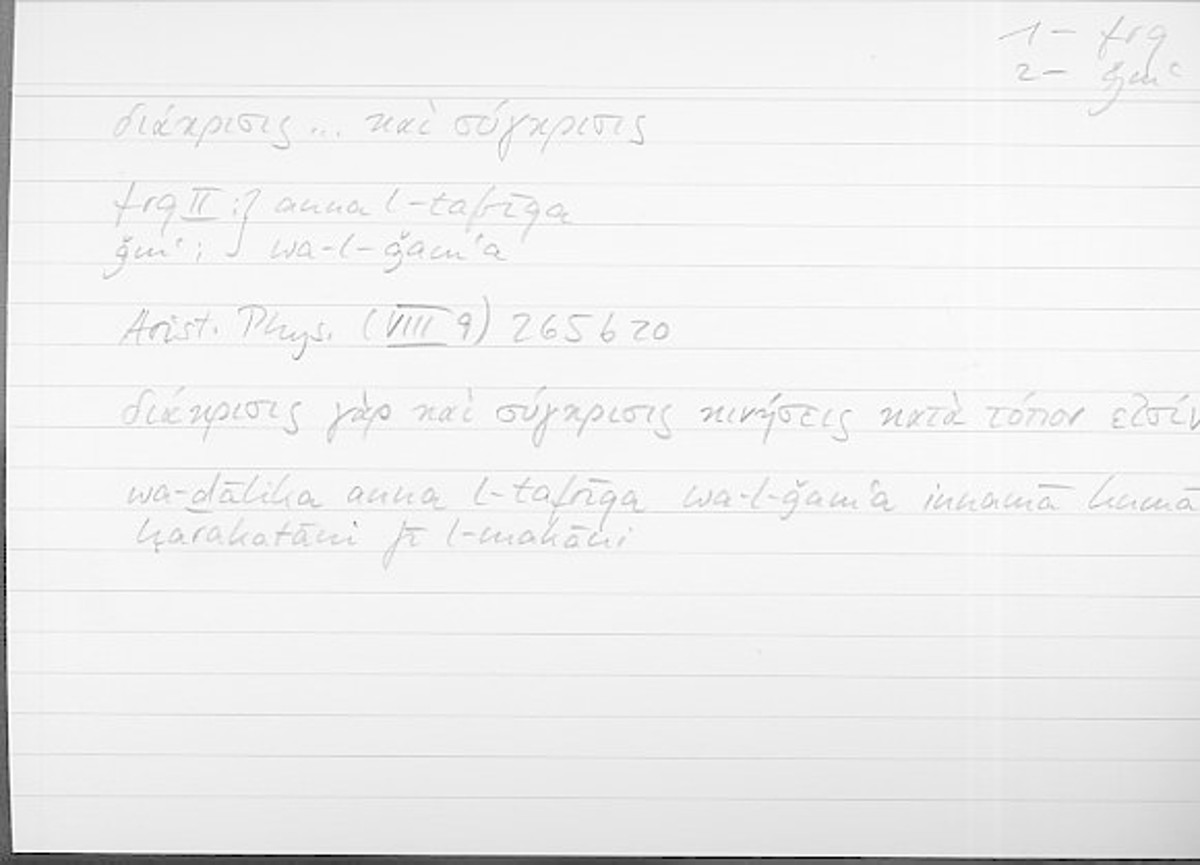 1- frq
2- ǧmʿ
διάκρισις ... καὶ σύγκρισις
frq II : } anna l-tafrīqa
ǧmʿ : } wa-l-ǧamʿa
Arist. Phys. (VIII 9) 265 b 20
διάκρισις γὰρ καὶ σύγκρισις κινήσεις κατὰ τόπον εἰσίν
wa-ḏālika anna l-tafrīqa wa-l-ǧamʿa innamā humā
ḥarakatāni fī l-makāni